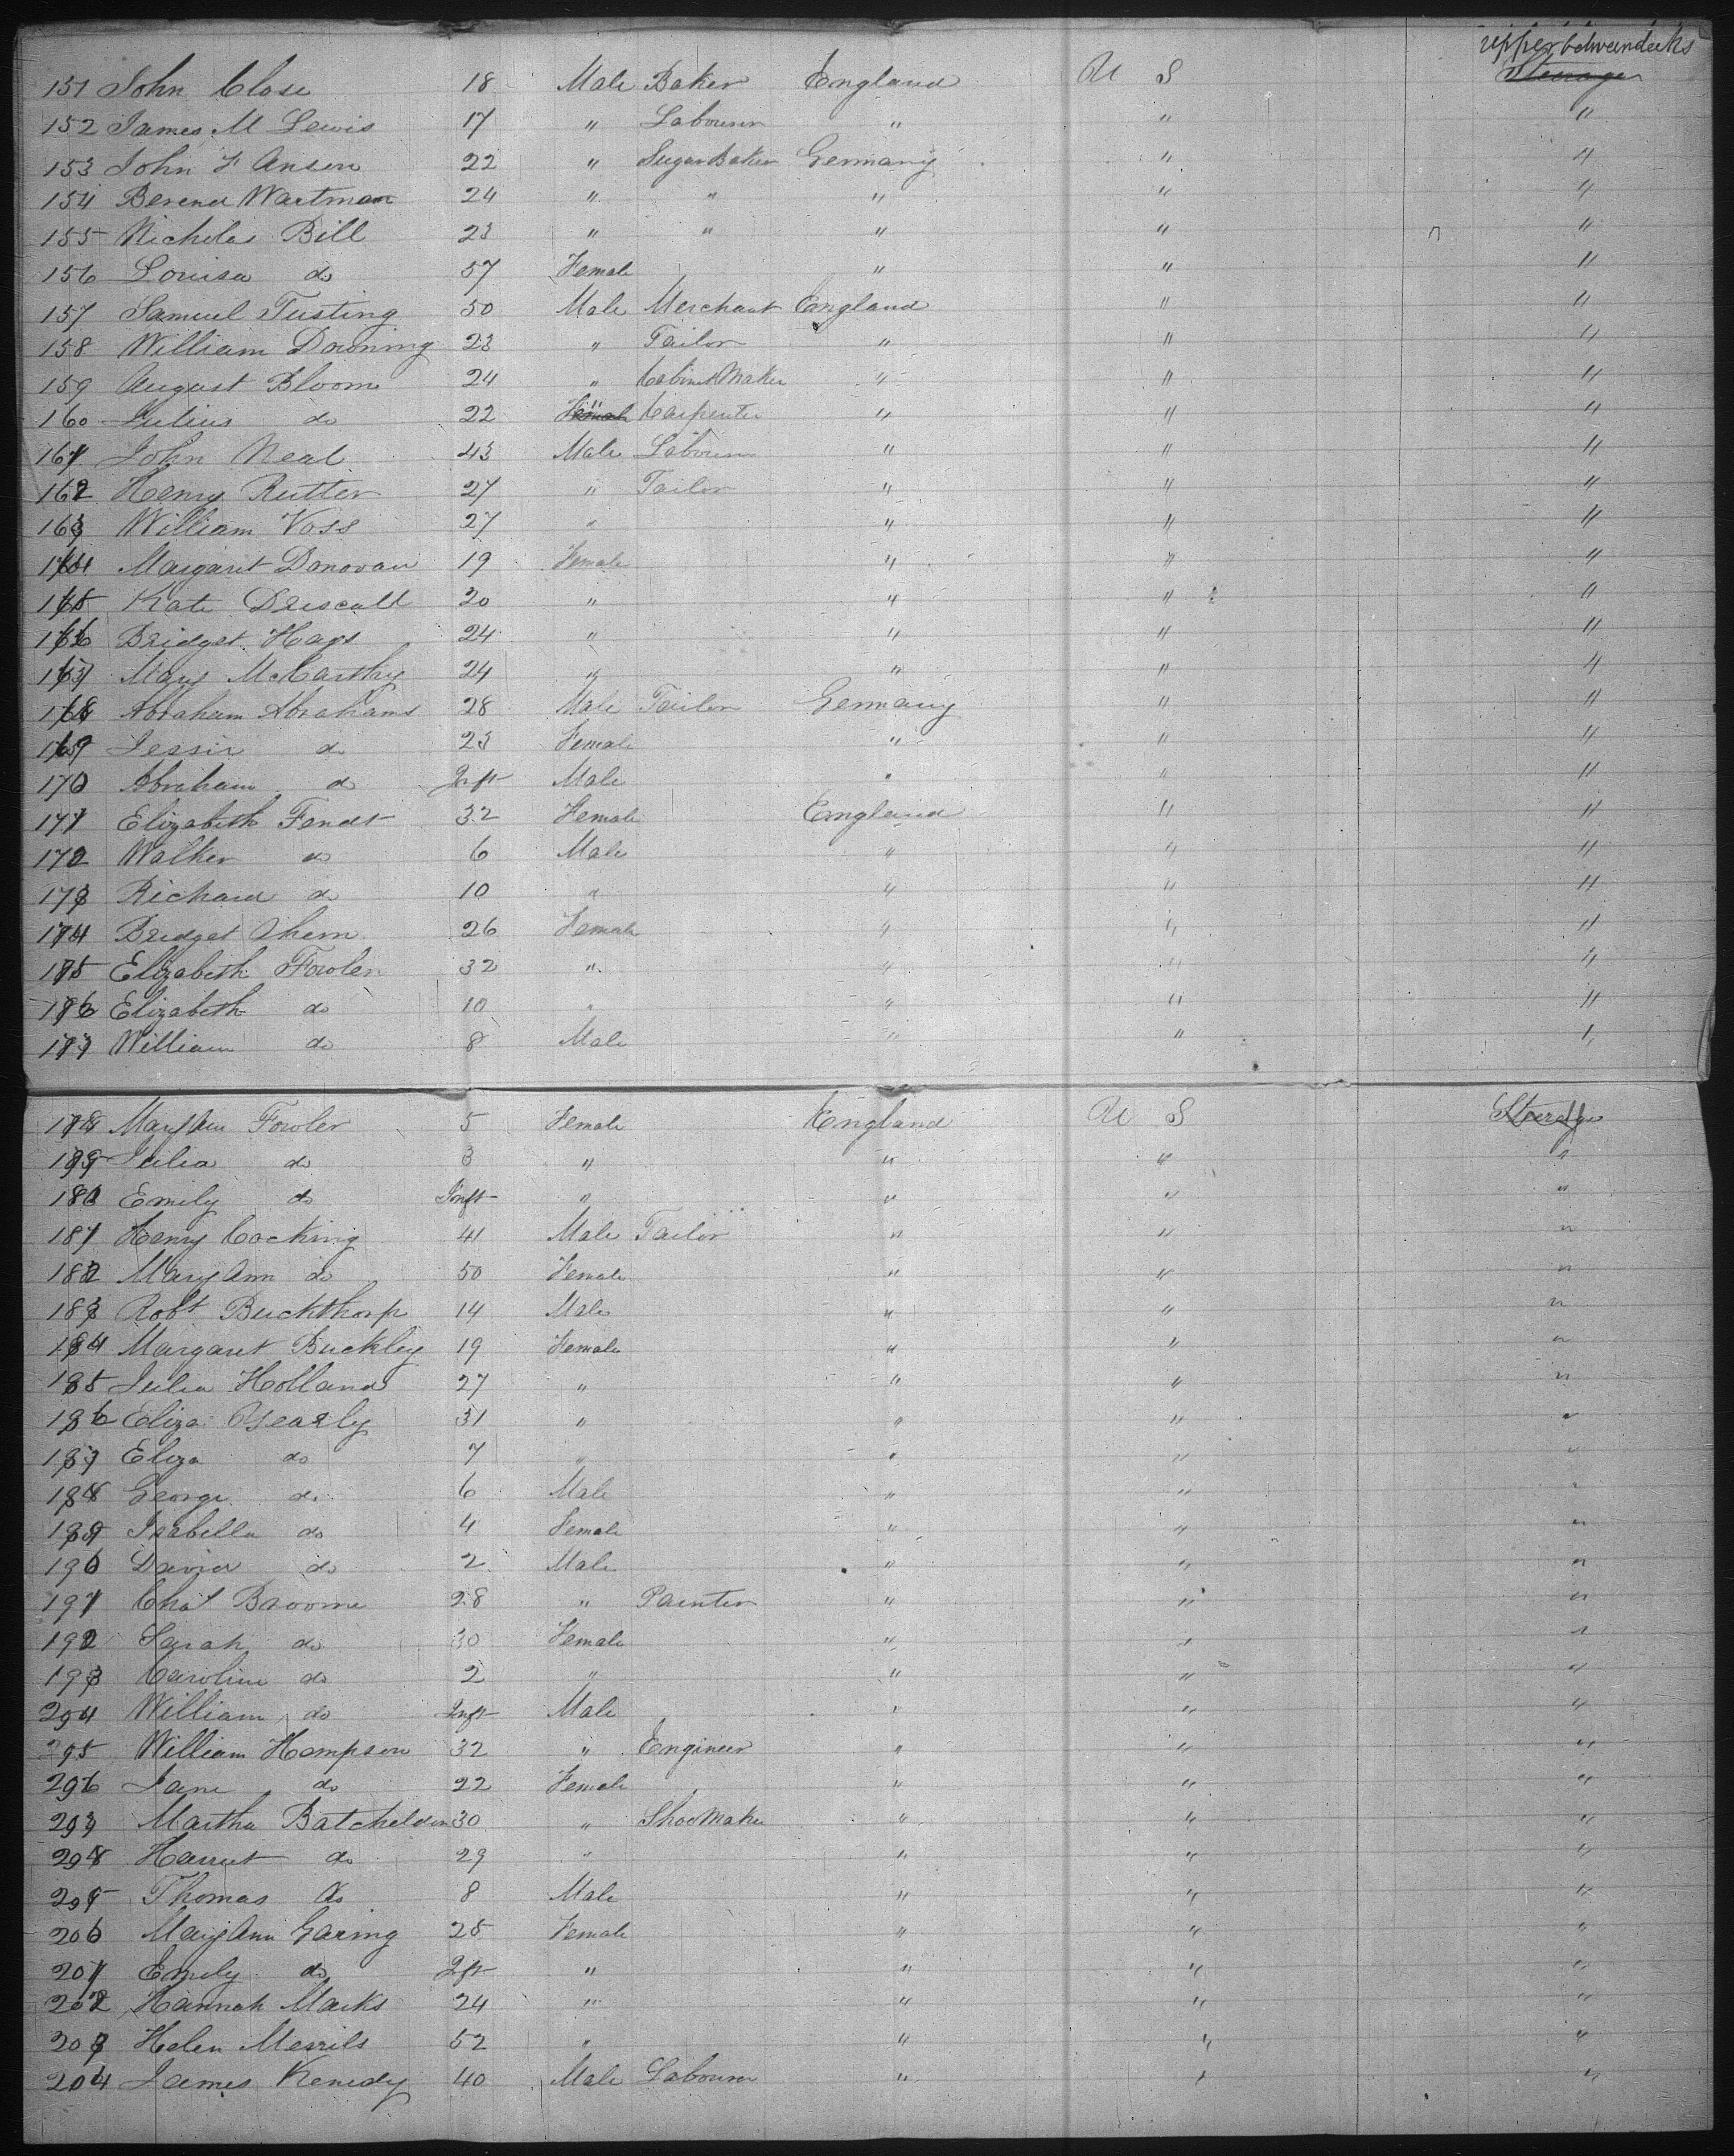 upper betweendecks
151 John Close 18 Male Baker England U S Steerage
152 James M Lewis 17 " Labourer " " "
153 John F Ansen 22 " Sugar Baker Germany " "
154 Berend Wartman 24 " " " " "
155 Nicholas Bill 23 " " " " "
156 Louisa do 57 Female " " "
157 Samuel Tusting 50 Male Merchant England " "
158 William Downing 23 " Tailor " " "
159 August Bloom 24 " Cabinet Maker " " "
160 Julius do 22 " Carpenter " " "
161 John Neal 43 Male Labourer " " "
162 Henry Rutter 27 " Tailor " " "
163 William Voss 27 " " " "
164 Margaret Donovan 19 Female " " "
165 Kate Driscall 20 " " " "
166 Bridget Hays 24 " " " "
167 Mary McCarthy 24 " " " "
168 Abraham Abrahams 28 Male Tailor Germany " "
169 Jessie do 23 Female " " "
170 Abraham do Inft Male " " "
171 Elizabeth Fendt 32 Female England " "
172 Walker do 6 Male " " "
173 Richard do 10 " " " "
174 Bridget Ahern 26 Female " " "
175 Elizabeth Fowler 32 " " " "
176 Elizabeth do 10 " " " "
177 William do 8 Male " " "
178 Mary Ann Fowler 5 Female England U S Steerage
179 Julia do 3 " " " "
180 Emily do Inft " " " "
181 Henry Cocking 41 Male Tailor " " "
182 Mary Ann do 50 Female " " "
183 Robt Buckthorp 14 Male " " "
184 Margaret Buckley 19 Female " " "
185 Julia Holland 27 " " " "
186 Eliza Yearly 31 " " " "
187 Eliza do 7 " " " "
188 George do 6 Male " " "
189 Isabella do 4 Female " " "
190 David do 2 Male " " "
191 Chas Broome 28 " Painter " " "
192 Sarah do 30 Female " " "
193 Caroline do 2 " " " "
294 William do Inft Male " " "
295 William Hempson 32 " Engineer " " "
296 Jane do 22 Female " " "
297 Martha Batchelder 30 " Shoe Maker " " "
298 Harriet do 29 " " " "
299 Thomas do 8 Male " " "
200 Mary Ann Garing 25 Female " " "
201 Emily do Inft " " " "
202 Hannah Marks 24 " " " "
203 Helen Merrils 52 " " " "
204 James Kenedy 40 Male Labourer " " "